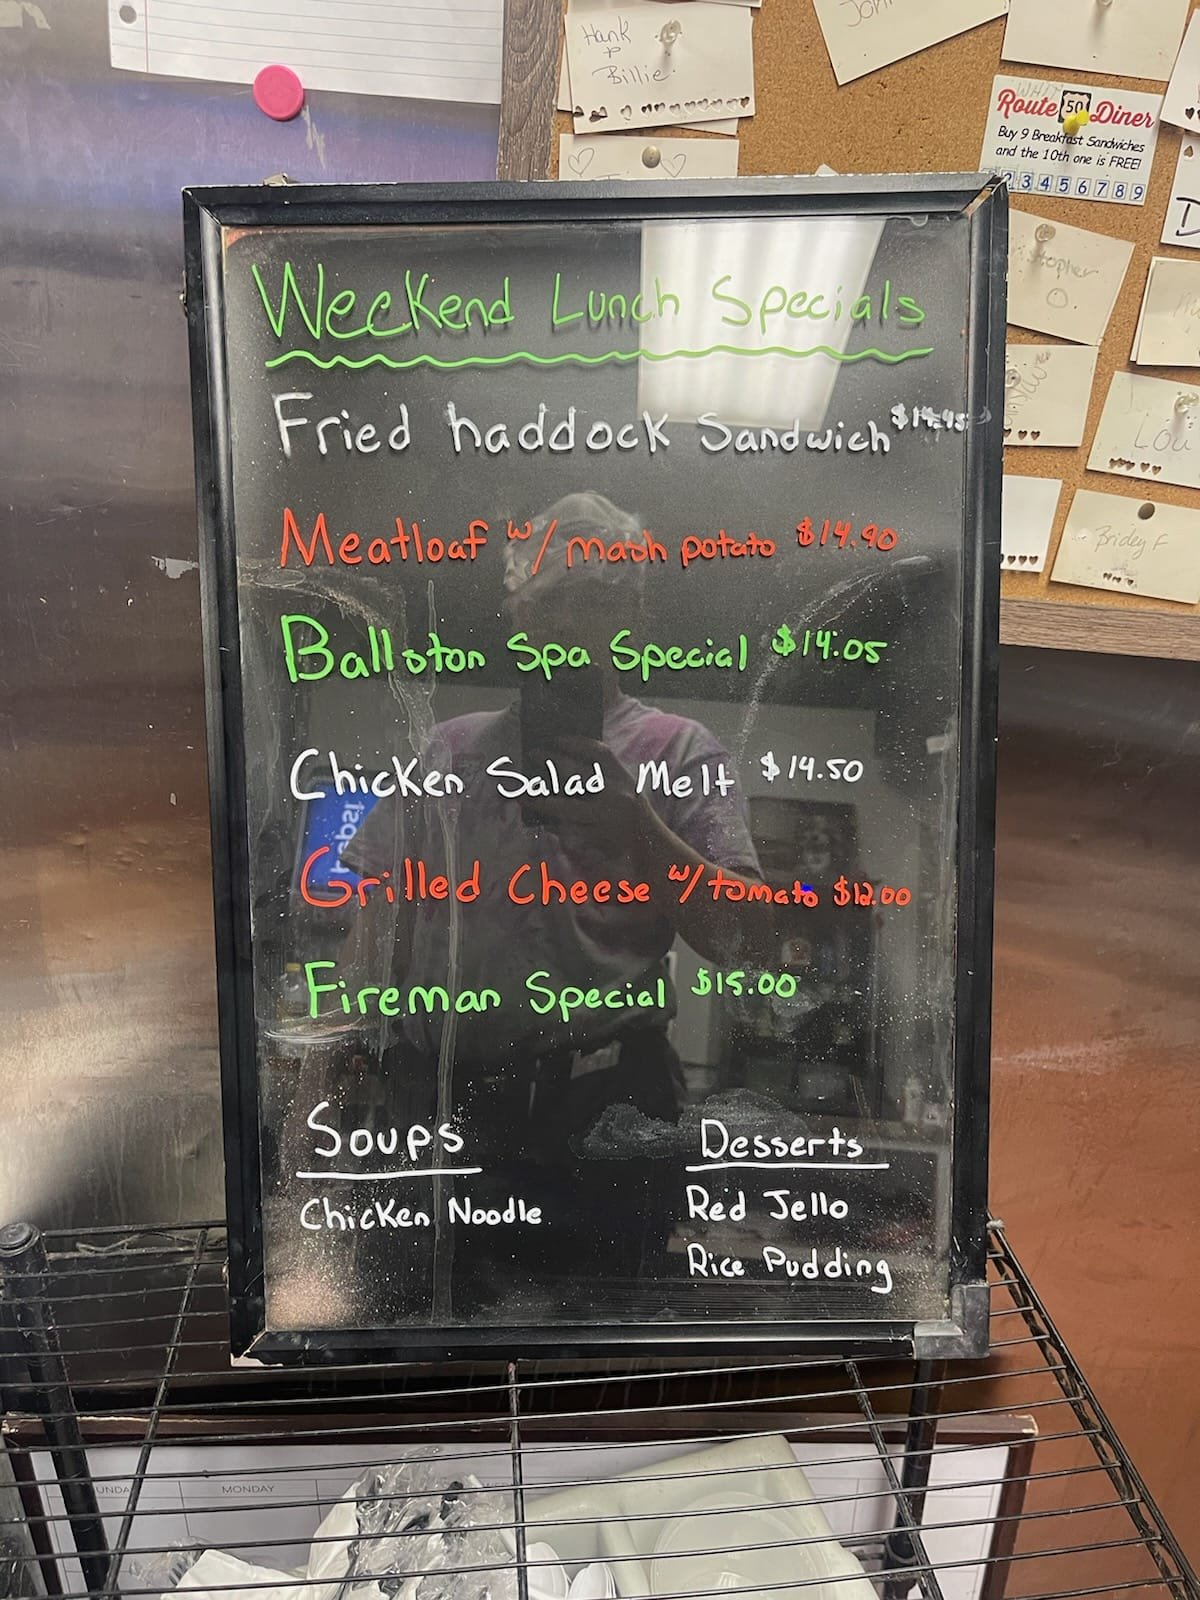 Hank
+
Billie
Route 50 Diner
Buy 9 Breakfast Sandwiches
and the 10th one is FREE!
2 3 4 5 6 7 8 9
Weekend Lunch Specials
Fried haddock Sandwich
Meatloaf w/ mash potato $14.90
Ballston Spa Special $14.05
Chicken Salad Melt $14.50
Grilled Cheese w/ tomato $12.00
Fireman Special $15.00
Soups
Chicken Noodle
Desserts
Red Jello
Rice Pudding
Lou
Bridey F
pepsi
MONDAY